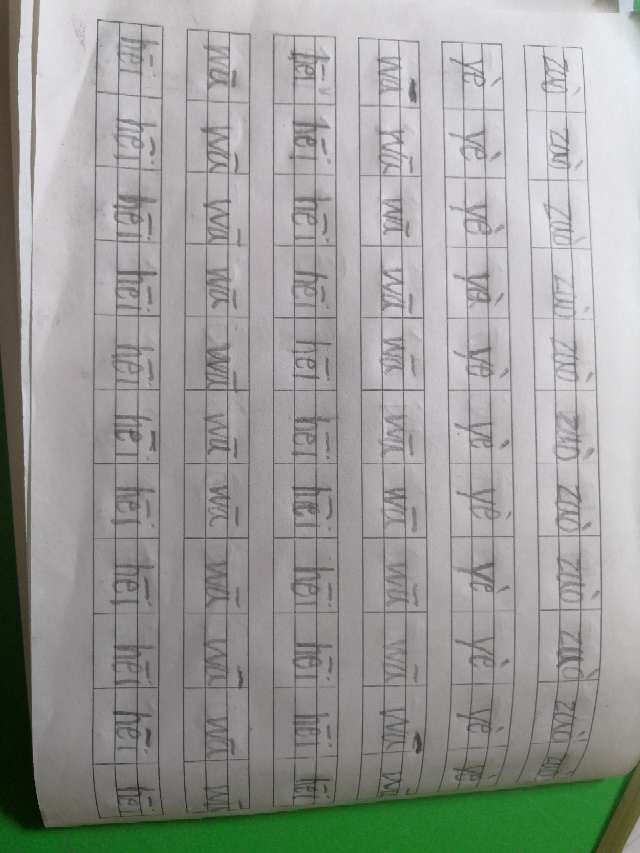 zuò zuò zuò zuò zuò zuò zuò zuò zuò zuò zuò
yè yè yè yè yè yè yè yè yè yè yè
wā wā wā wā wā wā wā wā wā wā wā
hēi hēi hēi hēi hēi hēi hēi hēi hēi hēi hēi
wā wā wā wā wā wā wā wā wā wā wā
hēi hēi hēi hēi hēi hēi hēi hēi hēi hēi hēi